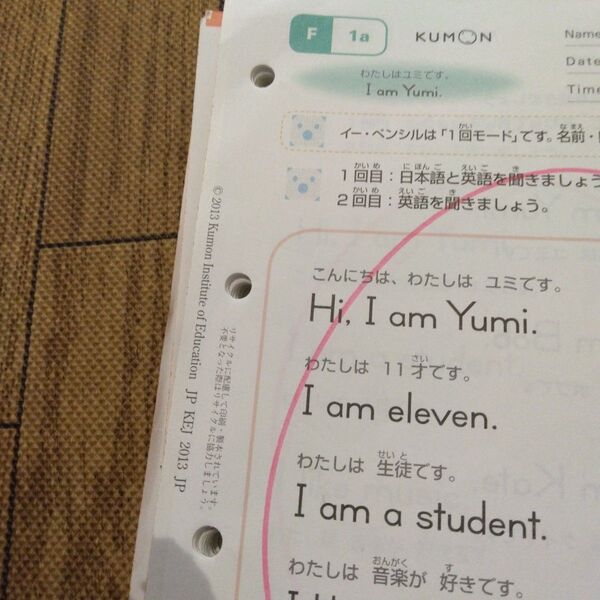 F 1a
KUMON
Name
Date
Time
わたしはユミです。
I am Yumi.
イー・ペンシルは「1回モード」です。名前・
1回目：日本語と英語を聞きましょう
2回目：英語を聞きましょう。
こんにちは、わたしは ユミです。
Hi, I am Yumi.
わたしは 11才です。
I am eleven.
わたしは 生徒です。
I am a student.
わたしは 音楽が 好きです。
© 2013 Kumon Institute of Education JP KEJ 2013 JP
リサイクルに配慮して印刷・製本されています。
不要となった際はリサイクルに協力しましょう。